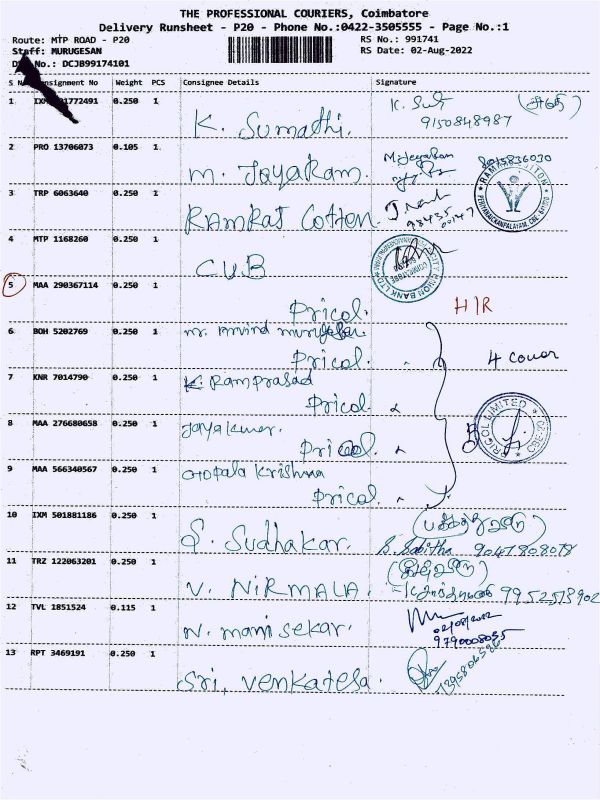 THE PROFESSIONAL COURIERS, Coimbatore
Delivery Runsheet - P20 - Phone No.:0422-3505555 - Page No.:1
Route: MTP ROAD - P20
RS No.: 991741
Staff: MURUGESAN
RS Date: 02-Aug-2022
No.: DCJB99174101
S Consignment No Weight PCS Consignee Details Signature
1 0.250 1 K. Sumathi.
9150848987
2 PRO 13706073 0.105 1 M. Jayaram.
M. Jeyaram
3 TRP 6063640 0.250 1 RAMRAJ Cotton
98435
00147
4 MTP 1168260 0.250 1 CUB
CITY UNION BANK LTD
5 MAA 290367114 0.250 1
Pricol. HIR
6 BOH 5202769 0.250 1 mr. Arvind
Pricol. 4 cover
7 KNR 7014790 0.250 1 K. Ramprasad
Pricol.
8 MAA 276680658 0.250 1 Jayakumar.
Pricol
PRICOL LIMITED
9 MAA 566340567 0.250 1 Gopala Krishna
Pricol.
10 IXM 501881186 0.250 1 S. Sudhakar.
S. Sabitha 9047808078
11 TRZ 122063201 0.250 1 V. NIRMALA.
9952518902
12 TVL 1851524 0.115 1 N. manisekar.
02/08/2022
9790008055
13 RPT 3469191 0.250 1 Sri, Venkatesa.